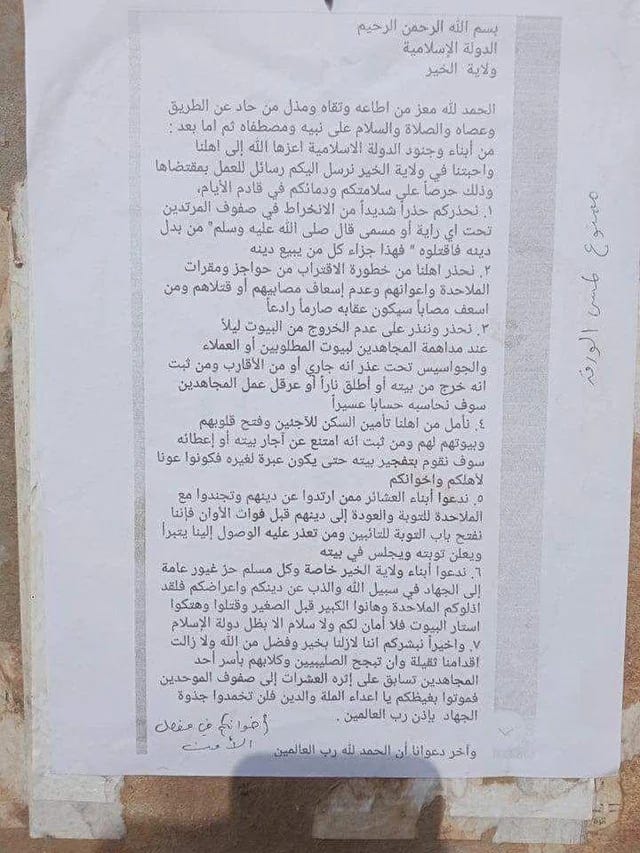 بسم الله الرحمن الرحيم
الدولة الإسلامية
ولاية الخير
الحمد لله معز من اطاعه وتقاه ومذل من حاد عن الطريق
وعصاه والصلاة والسلام على نبيه ومصطفاه ثم اما بعد :
من أبناء وجنود الدولة الاسلامية اعزها الله إلى اهلنا
واحبتنا في ولاية الخير نرسل اليكم رسائل للعمل بمقتضاها
وذلك حرصاً على سلامتكم ودمائكم في قادم الأيام،
١. نحذركم حذراً شديداً من الانخراط في صفوف المرتدين
تحت اي راية أو مسمى قال صلى الله عليه وسلم" من بدل
دينه فاقتلوه " فهذا جزاء كل من يبيع دينه
٢. نحذر اهلنا من خطورة الاقتراب من حواجز ومقرات
الملاحدة واعوانهم وعدم إسعاف مصابيهم أو قتلاهم ومن
اسعف مصاباً سيكون عقابه صارماً رادعاً
٣. نحذر وننذر على عدم الخروج من البيوت ليلاً
عند مداهمة المجاهدين لبيوت المطلوبين أو العملاء
والجواسيس تحت عذر انه جاري أو من الأقارب ومن ثبت
انه خرج من بيته أو أطلق ناراً أو عرقل عمل المجاهدين
سوف نحاسبه حسابا عسيراً
٤. نأمل من اهلنا تأمين السكن للآجئين وفتح قلوبهم
وبيوتهم لهم ومن ثبت انه امتنع عن آجار بيته أو إعطائه
سوف نقوم بتفجير بيته حتى يكون عبرة لغيره فكونوا عونا
لأهلكم واخوانكم
٥. ندعوا أبناء العشائر ممن ارتدوا عن دينهم وتجندوا مع
الملاحدة للتوبة والعودة إلى دينهم قبل فوات الأوان فإننا
نفتح باب التوبة للتائبين ومن تعذر عليه الوصول إلينا يتبرأ
ويعلن توبته ويجلس في بيته
٦. ندعوا أبناء ولاية الخير خاصة وكل مسلم حر غيور عامة
إلى الجهاد في سبيل الله والذب عن دينكم واعراضكم فلقد
اذلوكم الملاحدة وهانوا الكبير قبل الصغير وقتلوا وهتكوا
استار البيوت فلا أمان لكم ولا سلام الا بظل دولة الإسلام
٧. واخيراً نبشركم اننا لازلنا بخير وفضل من الله ولا زالت
اقدامنا ثقيلة وان تبجح الصليبيين وكلابهم بأسر أحد
المجاهدين تسابق على إثره العشرات إلى صفوف الموحدين
فموتوا بغيظكم يا اعداء الملة والدين فلن تخمدوا جذوة
الجهاد بإذن رب العالمين .
وآخر دعوانا أن الحمد لله رب العالمين
أخوانكم في مفصل
الأمن
ممنوع لمس الورقة